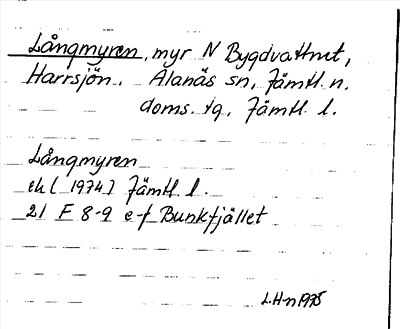 Långmyren, myr N Bygdvattnet,
Harrsjön. Alanäs sn, Jämtl. n.
doms. tg, Jämtl. l.
Långmyren
ek ( 1974) Jämtl. l.
21 F 8-9 e-f Bunkfjället
L.H-n 1975